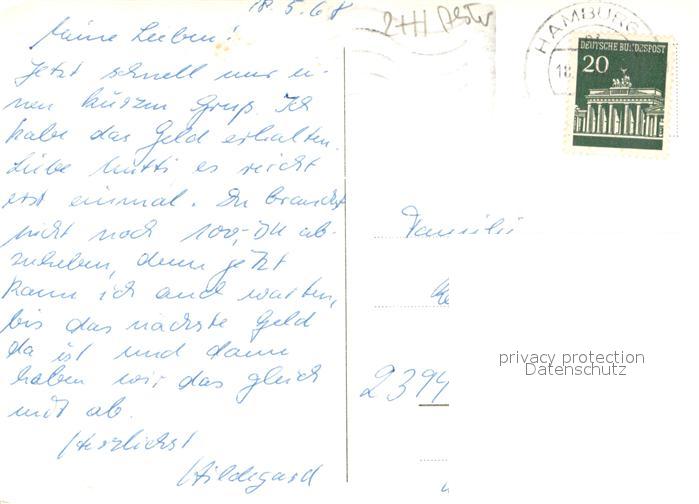 18.5.68
Meine Lieben!
Jetzt schnell nur ei-
nen kurzen Gruß. Ich
habe das Geld erhalten.
Liebe Mutti es reicht
erst einmal. Du brauchst
nicht noch 100,- DM ab-
zuheben, denn jetzt
kann ich auch warten,
bis das nächste Geld
da ist und dann
haben wir das gleich
mit ab.
Herzlichst
Hildegard
HAMBURG
18.
DEUTSCHE BUNDESPOST
20
Familie
2394
privacy protection
Datenschutz